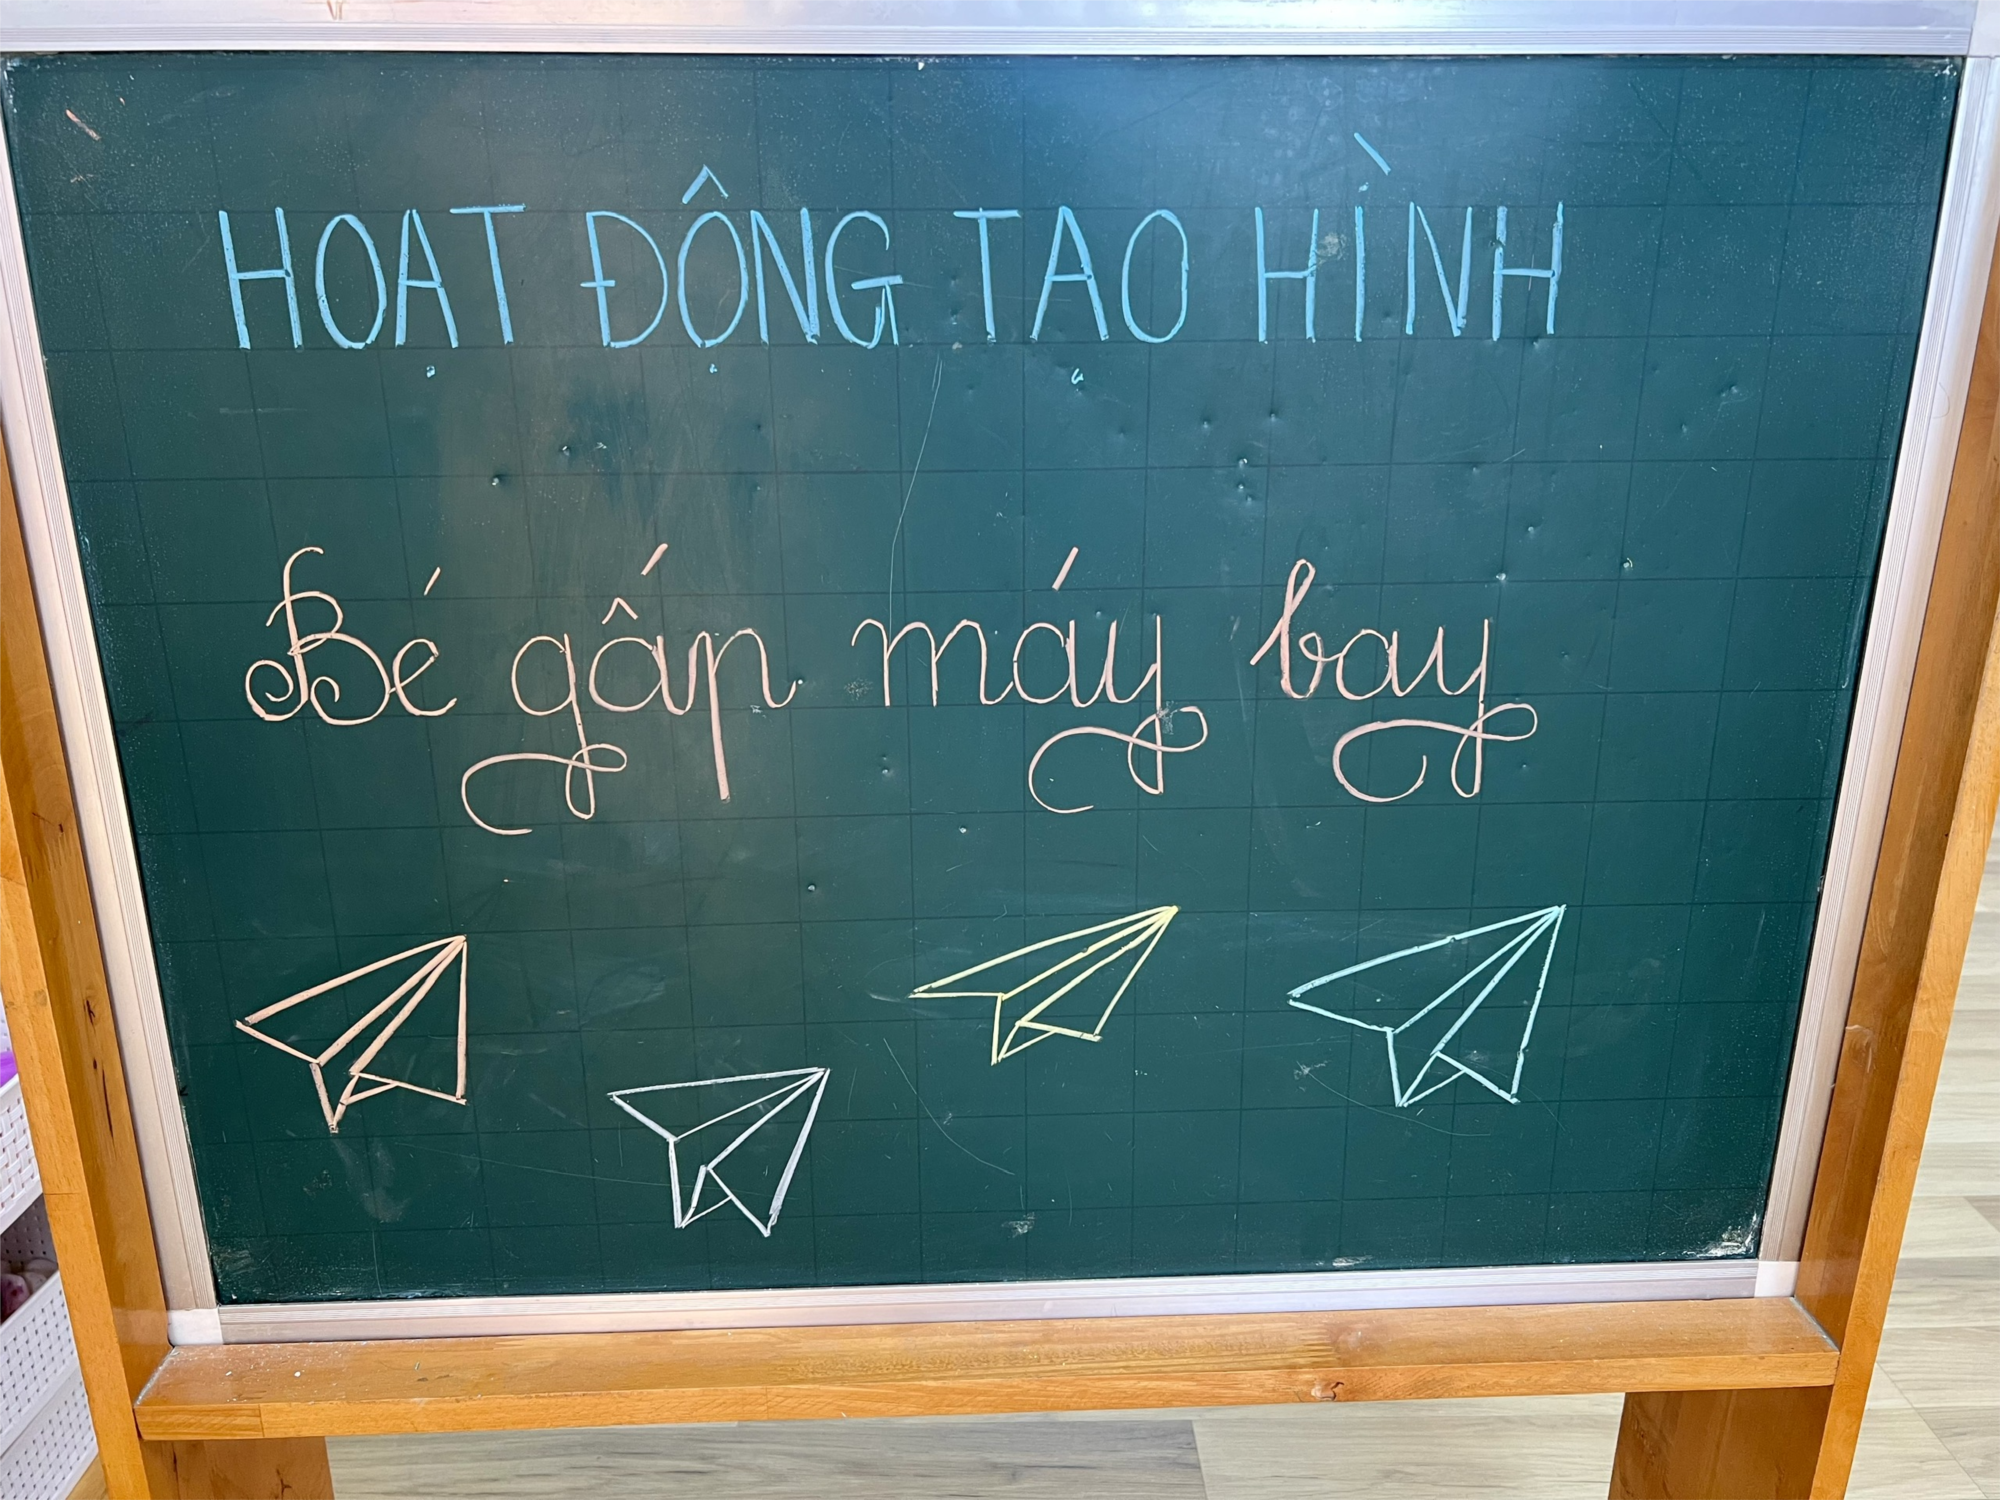 HOẠT ĐỘNG TẠO HÌNH
Bé gấp máy bay